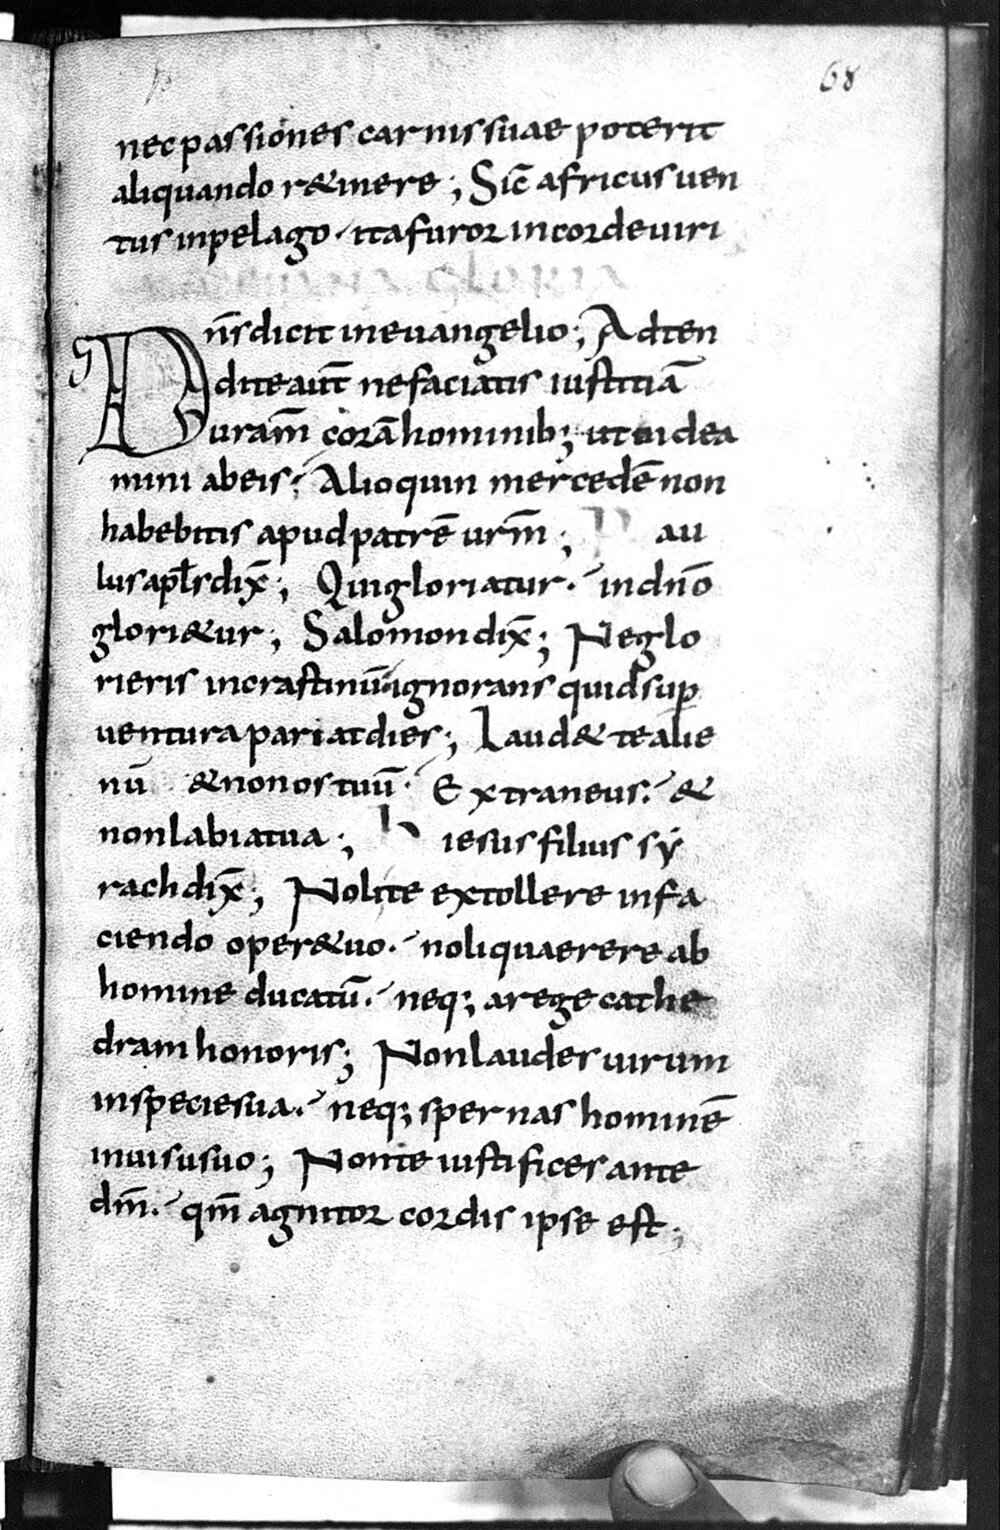 68
nec passiones carnis suae poterit
aliquando r&inere; Sic̄ africus uen
tus inpelago · ita furor in corde uiri
GLORIA
Dn̄s dicit in euangelio; Adten
dite aut̄ ne faciatis iustitiā
uram̄ corā hominib; ut uidea
mini ab eis; Alioquin mercedē non
habebitis apud patrē urm̄; Pau
lus apl̄s dix̄; Qui gloriatur · in dn̄o
glori&ur; Salomon dix̄; Ne glo
rieris in crastinū ignorans quid sup
uentura pariat dies; Laud& te alie
nū & non os tuū · Extraneus · &
non labia tua; hiesus filius sẏ
rach dix̄; Nolite extollere in fa
ciendo oper& uo · noli quaerere ab
homine ducatū · neq; a rege cathe
dram honoris; Non laudes uirum
in specie sua · neq; spernas hominē
in uisu suo; Non te iustifices ante
dm̄ · qm̄ agnitor cordis ipse est;